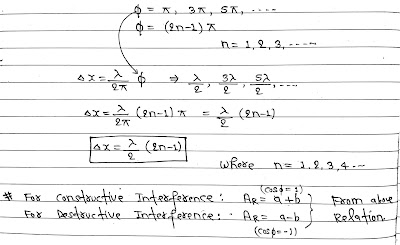 ϕ = π, 3π, 5π, ----
ϕ = (2n-1) π
n = 1, 2, 3, -----
Δx = λ/2π ϕ ⇒ λ/2, 3λ/2, 5λ/2, ----
Δx = λ/2π (2n-1) π = λ/2 (2n-1)
Δx = λ/2 (2n-1)
where n = 1, 2, 3, 4 --
# For Constructive Interference : AR = a+b (cosϕ = 1) } From above
For Destructive Interference : AR = a-b (cosϕ = -1) } Relation